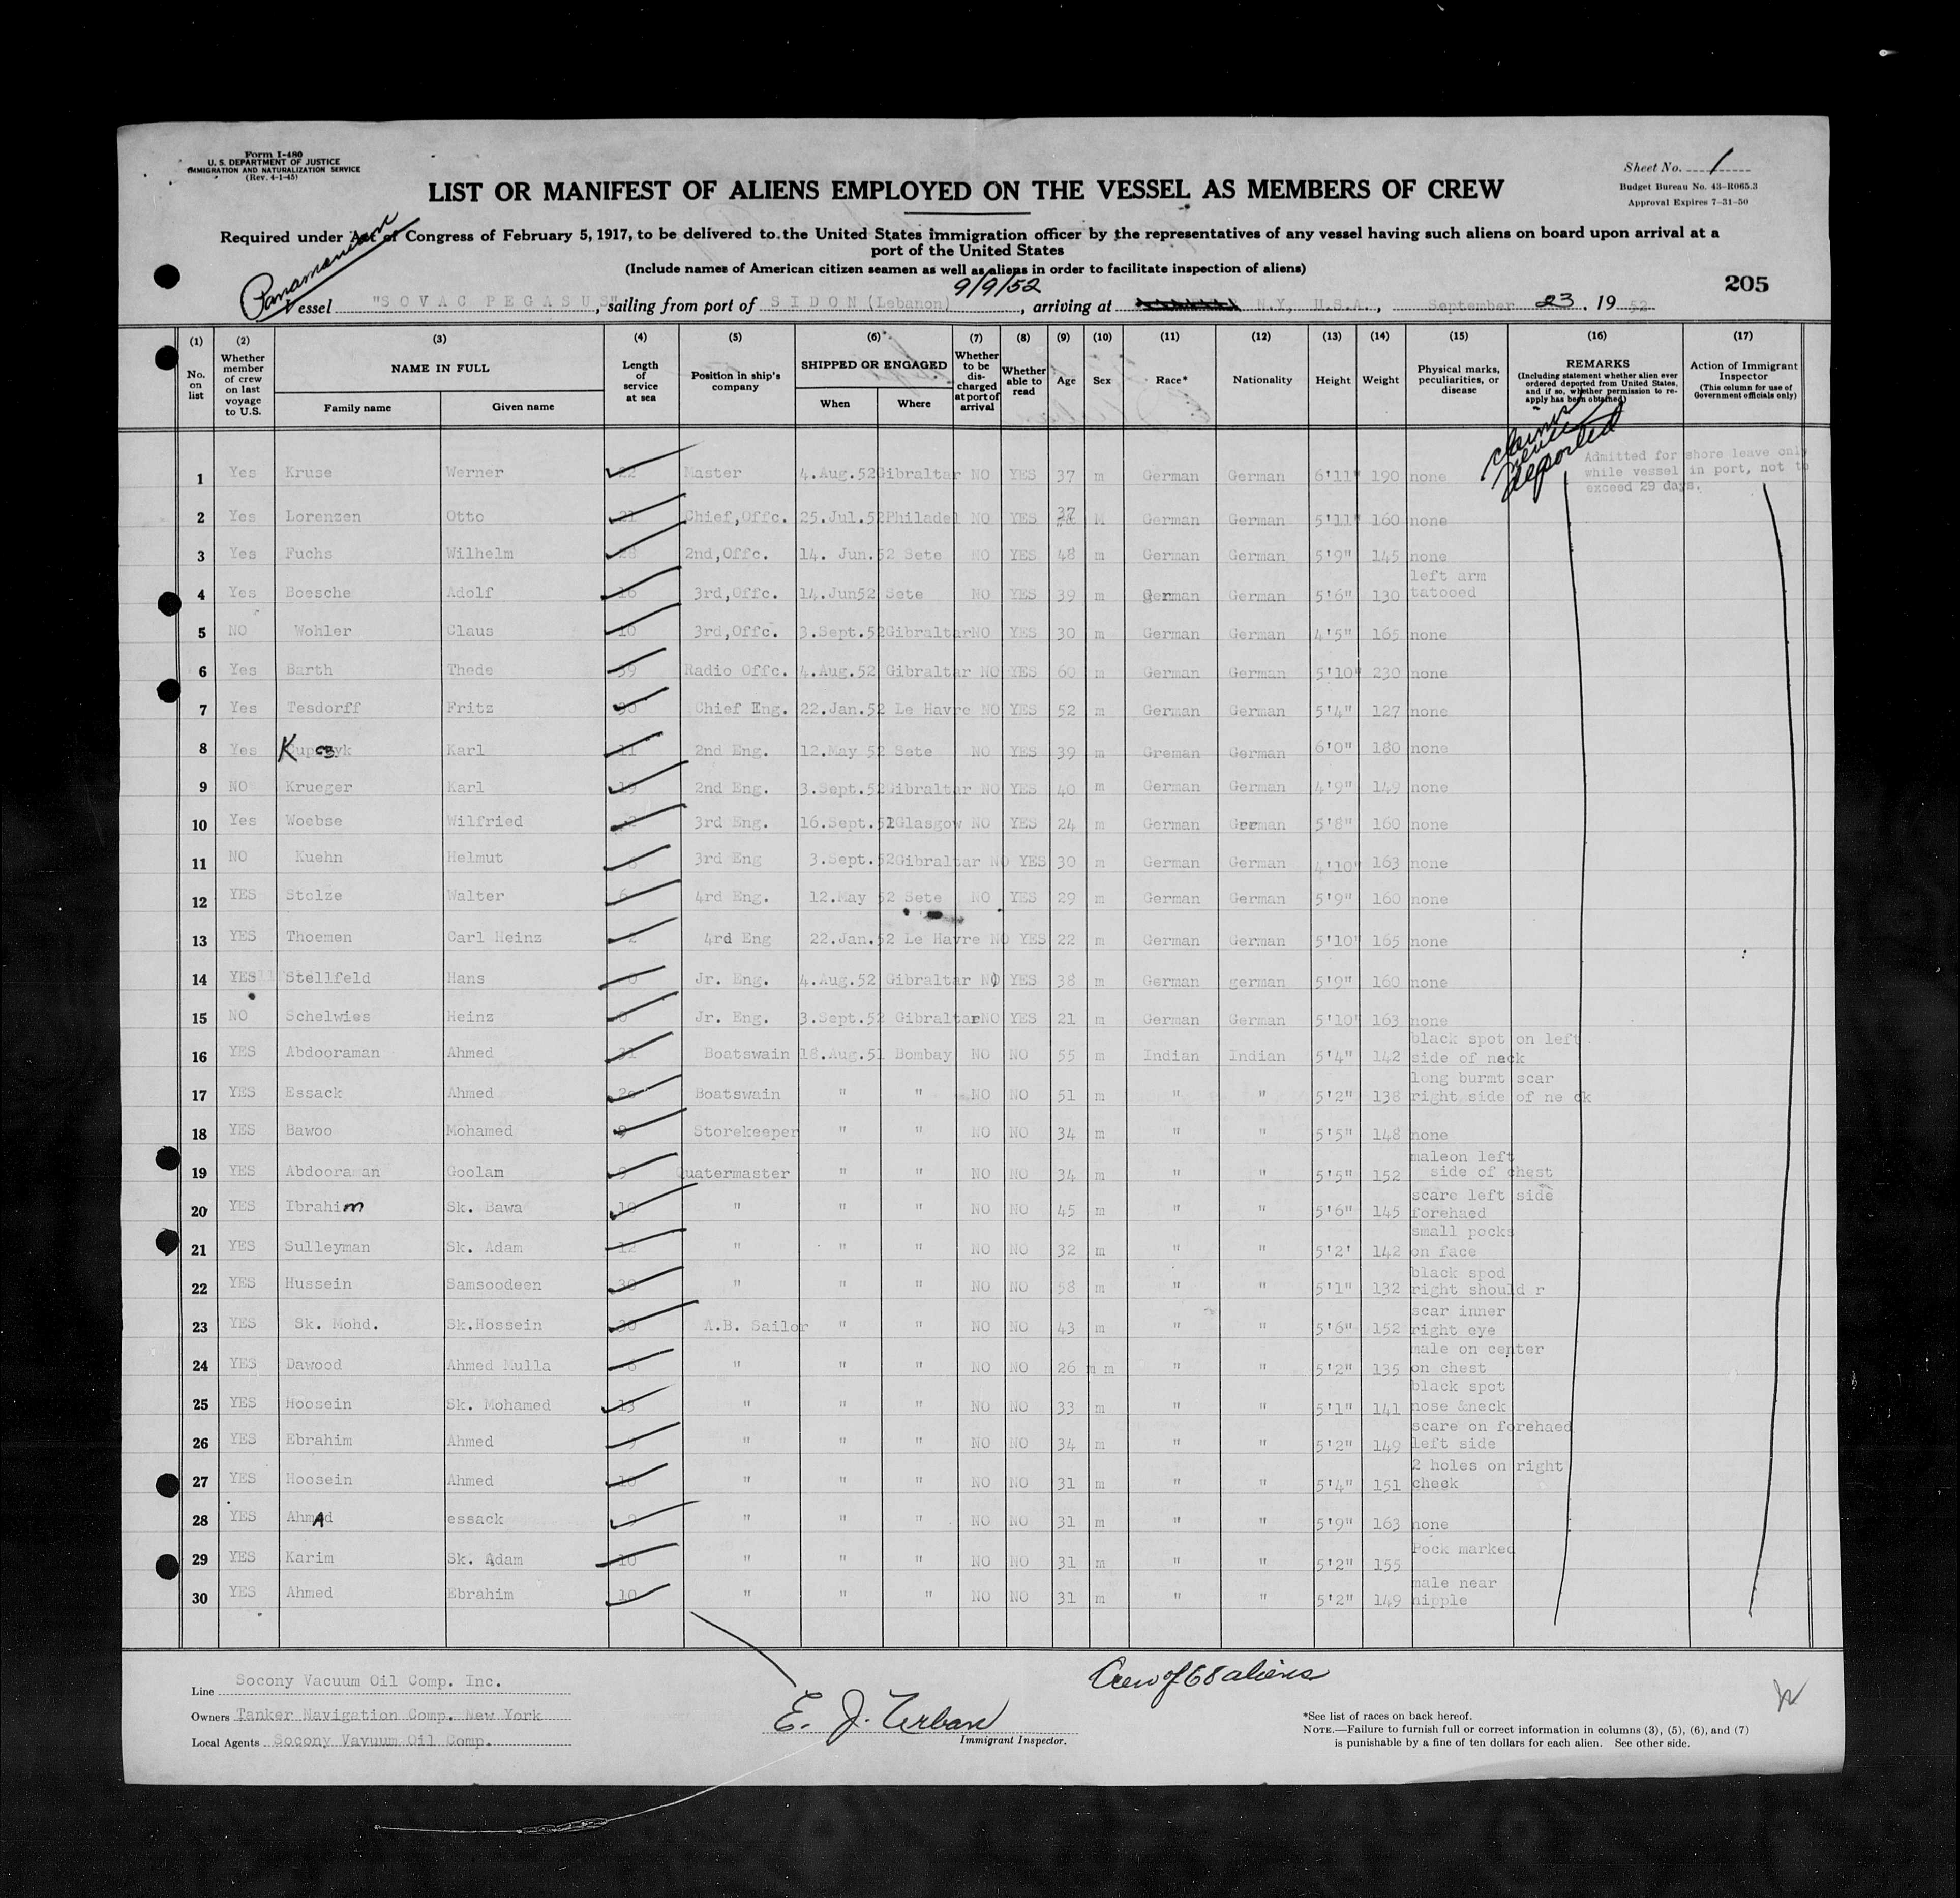 Form I-480
U. S. DEPARTMENT OF JUSTICE
IMMIGRATION AND NATURALIZATION SERVICE
(Rev. 4-1-45)
Sheet No. 1
Budget Bureau No. 43-R065.3
Approval Expires 7-31-50
LIST OR MANIFEST OF ALIENS EMPLOYED ON THE VESSEL AS MEMBERS OF CREW
Required under Act of Congress of February 5, 1917, to be delivered to the United States immigration officer by the representatives of any vessel having such aliens on board upon arrival at a
port of the United States
(Include names of American citizen seamen as well as aliens in order to facilitate inspection of aliens)
Panamanian
9/9/52
205
Vessel "SOVAC PEGASUS", sailing from port of SIDON (Lebanon), arriving at N.Y, U.S.A., September 23, 1952
(1) (2) (3) (4) (5) (6) (7) (8) (9) (10) (11) (12) (13) (14) (15) (16) (17)
No. on list
Whether member of crew on last voyage to U.S.
NAME IN FULL
Family name Given name
Length of service at sea
Position in ship's company
SHIPPED OR ENGAGED
When Where
Whether to be discharged at port of arrival
Whether able to read
Age Sex Race* Nationality Height Weight
Physical marks, peculiarities, or disease
REMARKS
(Including statement whether alien ever ordered deported from United States, and if so, whether permission to reapply has been obtained)
Action of Immigrant Inspector
(This column for use of Government officials only)
claims never deported
Admitted for shore leave only
while vessel in port, not to
exceed 29 days.
1 Yes Kruse Werner Master 4.Aug.52 Gibraltar NO YES 37 m German German 6'11" 190 none
2 Yes Lorenzen Otto 21 Chief,Offc. 25.Jul.52 Philadel NO YES 37 M German German 5'11" 160 none
3 Yes Fuchs Wilhelm 2nd,Offc. 14. Jun.52 Sete NO YES 48 m German German 5'9" 145 none
4 Yes Boesche Adolf 16 3rd,Offc. 14.Jun52 Sete NO YES 39 m German German 5'6" 130 left arm tatooed
5 NO Wohler Claus 10 3rd,Offc. 3.Sept.52 Gibraltar NO YES 30 m German German 4'5" 165 none
6 Yes Barth Thede 39 Radio Offc. 4.Aug.52 Gibraltar NO YES 60 m German German 5'10" 230 none
7 Yes Tesdorff Fritz 30 Chief Eng. 22.Jan.52 Le Havre NO YES 52 m German German 5'4" 127 none
8 Yes Kupczyk Karl 11 2nd Eng. 12.May 52 Sete NO YES 39 m Greman German 6'0" 180 none
9 NO Krueger Karl 19 2nd Eng. 3.Sept.52 Gibraltar NO YES 40 m German German 4'9" 149 none
10 Yes Woebse Wilfried 3rd Eng. 16.Sept.51 Glasgow NO YES 24 m German German 5'8" 160 none
11 NO Kuehn Helmut 3rd Eng 3.Sept.52 Gibraltar NO YES 30 m German German 4'10" 163 none
12 YES Stolze Walter 6 4rd Eng. 12.May 52 Sete NO YES 29 m German German 5'9" 160 none
13 YES Thoemen Carl Heinz 2 4rd Eng 22.Jan.52 Le Havre NO YES 22 m German German 5'10" 165 none
14 YES Stellfeld Hans Jr. Eng. 4.Aug.52 Gibraltar NO YES 38 m German german 5'9" 160 none
15 NO Schelwies Heinz Jr. Eng. 3.Sept.52 Gibraltar NO YES 21 m German German 5'10" 163 none
16 YES Abdooraman Ahmed 31 Boatswain 18.Aug.51 Bombay NO NO 55 m Indian Indian 5'4" 142 black spot on left side of neck
17 YES Essack Ahmed Boatswain " " NO NO 51 m " " 5'2" 138 long burmt scar right side of ne ck
18 YES Bawoo Mohamed 9 Storekeeper " " NO NO 34 m " " 5'5" 148 none
19 YES Abdooraman Goolam 9 Quatermaster " " NO NO 34 m " " 5'5" 152 maleon left side of chest
20 YES Ibrahim Sk. Bawa 10 " " " NO NO 45 m " " 5'6" 145 scare left side forehaed
21 YES Sulleyman Sk. Adam 12 " " " NO NO 32 m " " 5'2' 142 small pocks on face
22 YES Hussein Samsoodeen 30 " " " NO NO 58 m " " 5'1" 132 black spod right should r
23 YES Sk. Mohd. Sk.Hossein 30 A.B. Sailor " " NO NO 43 m " " 5'6" 152 scar inner right eye
24 YES Dawood Ahmed Mulla 6 " " " NO NO 26 m m " " 5'2" 135 male on center on chest
25 YES Hoosein Sk. Mohamed 13 " " " NO NO 33 m " " 5'1" 141 black spot nose &neck
26 YES Ebrahim Ahmed " " " NO NO 34 m " " 5'2" 149 scare on forehaed left side
27 YES Hoosein Ahmed 10 " " " NO NO 31 m " " 5'4" 151 2 holes on right cheek
28 YES Ahmad essack 9 " " " NO NO 31 m " " 5'9" 163 none
29 YES Karim Sk. Adam 10 " " " NO NO 31 m " " 5'2" 155 Pock marked
30 YES Ahmed Ebrahim 10 " " " NO NO 31 m " " 5'2" 149 male near nipple
Line Socony Vacuum Oil Comp. Inc.
Owners Tanker Navigation Comp. New York
Local Agents Socony Vavuum Oil Comp.
E. J. Urban
Immigrant Inspector.
Crew of 68 aliens
*See list of races on back hereof.
NOTE.—Failure to furnish full or correct information in columns (3), (5), (6), and (7)
is punishable by a fine of ten dollars for each alien. See other side.